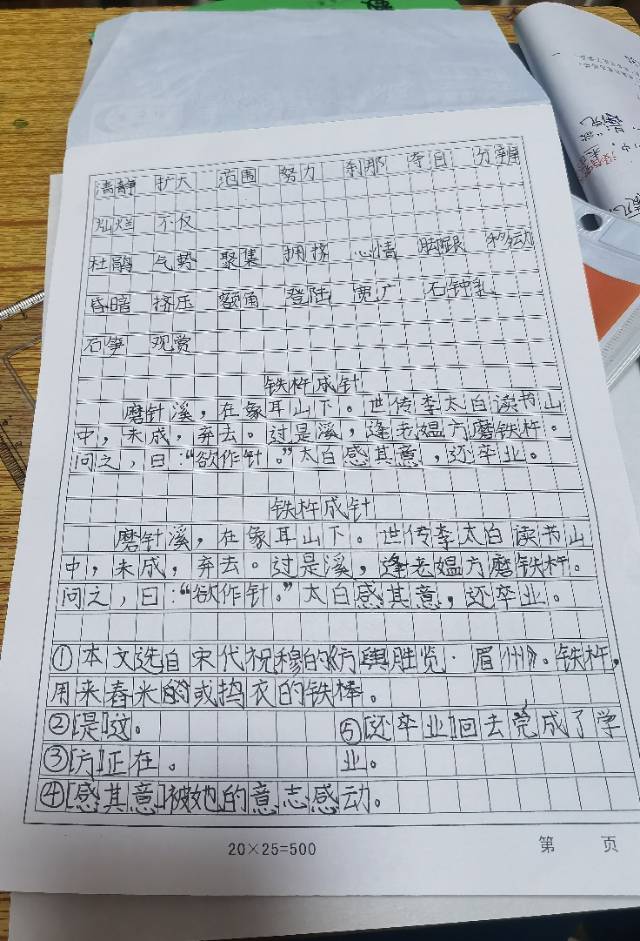 清静 扩大 范围 努力 刹那 夺目 分辨
灿烂 不仅
杜鹃 气势 聚集 拥挤 心情 脚跟 移动
昏暗 挤压 额角 登陆 宽广 石钟乳
石笋 观赏
铁杵成针
磨针溪，在象耳山下。世传李太白读书山
中，未成，弃去。过是溪，逢老媪方磨铁杵。
问之，曰：“欲作针。”太白感其意，还卒业。
铁杵成针
磨针溪，在象耳山下。世传李太白读书山
中，未成，弃去。过是溪，逢老媪方磨铁杵。
问之，曰：“欲作针。”太白感其意，还卒业。
①本文选自宋代祝穆的《方舆胜览·眉州》。铁杵，
用来舂米的或捣衣的铁棒。
②[是]这。
⑤[还卒业]回去完成了学
③[方]正在。
业。
④[感其意]被她的意志感动。
20×25=500
第 页